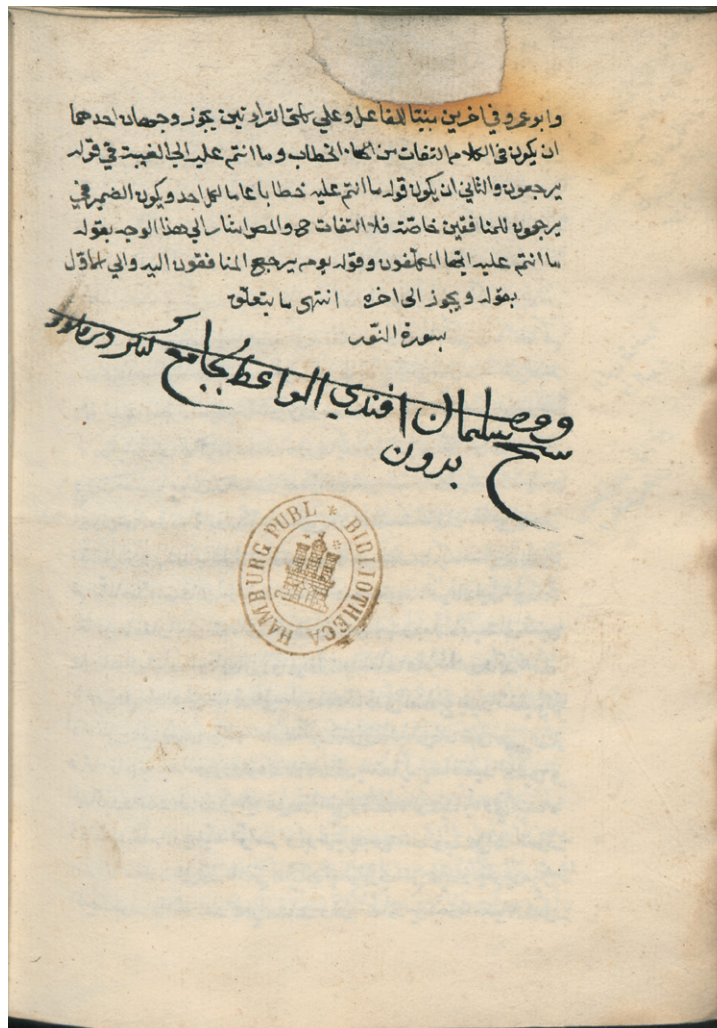 وابو عمرو في اخرين مبنيا للفاعل وعلى كلتي القراءتين يجوز وجهان احدهما
ان يكون في الكلام التفات من الخطاب وما انتم عليه الى الغيبة في قوله
يرجعون والثاني ان يكون قوله ما انتم عليه خطابا عاما لكل احد ويكون الضمير في
يرجعون للمنافقين خاصة فلا التفات ح والمص اشار الى هذا الوجه بقوله
ما انتم عليه ايها المكلفون وقوله يوم يرجع المنافقون اليه والى الاول
بقوله ويجوز الى اخره انتهى ما يتعلق
بسورة النور
سليمان افندي الواعظ بجامع
HAMBURG PUBL * BIBLIOTHECA